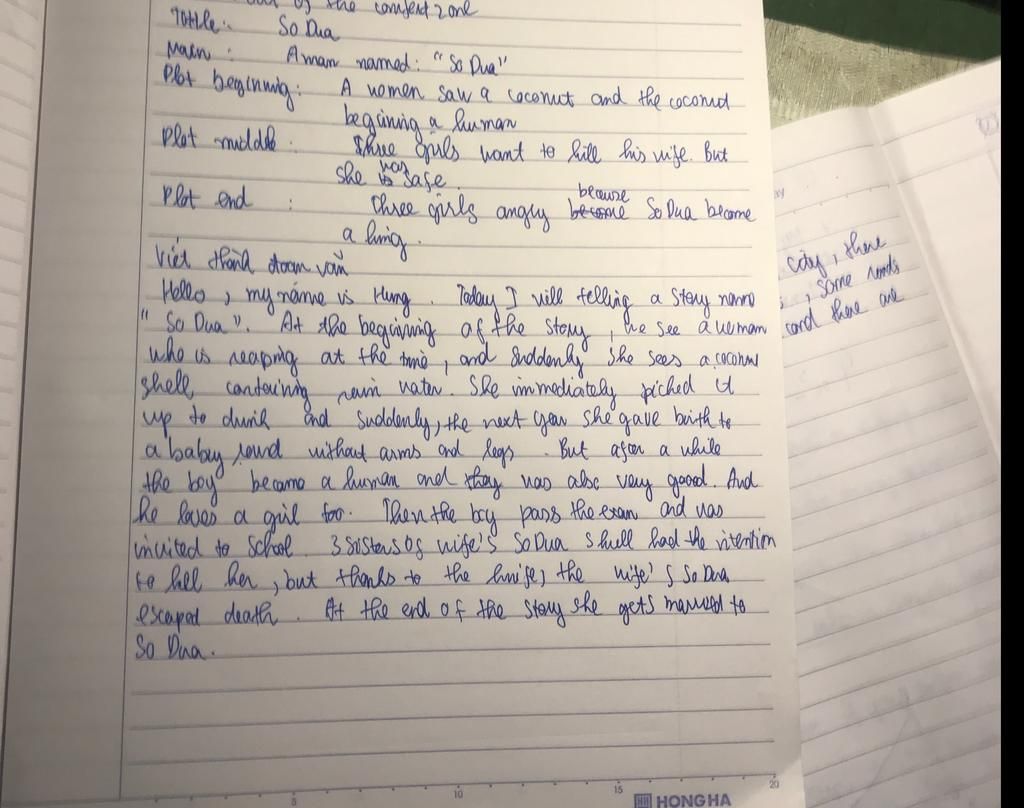 of the comfort zone
Tottle: So Dua
Main: A man named: "So Dua"
Plot beginning: A women saw a coconut and the coconut
begining a human
Plot middle: Three girls want to kill his wife. But
she was safe.
Plot end : three girls angry because So Dua become
a king.
Viết thành đoạn văn
Hello, my name is Hung. Today I will telling a story name
"So Dua". At the beginning of the story, we see a woman
who is reaping at the time, and suddenly she sees a coconut
shell, containing rain water. She immediately picked it
up to drink and suddenly, the next year she gave birth to
a baby round without arms and legs. But after a while
the boy became a human and they was also very good. And
he loves a girl too. Then the boy pass the exam and was
invited to school. 3 sisters of wife's So Dua shell had the intention
to kill her, but thanks to the knife, the wife's So Dua
escaped death. At the end of the story she gets married to
So Dua.
city, there
, some roads
and there are
5 10 15 20
HH HONG HA